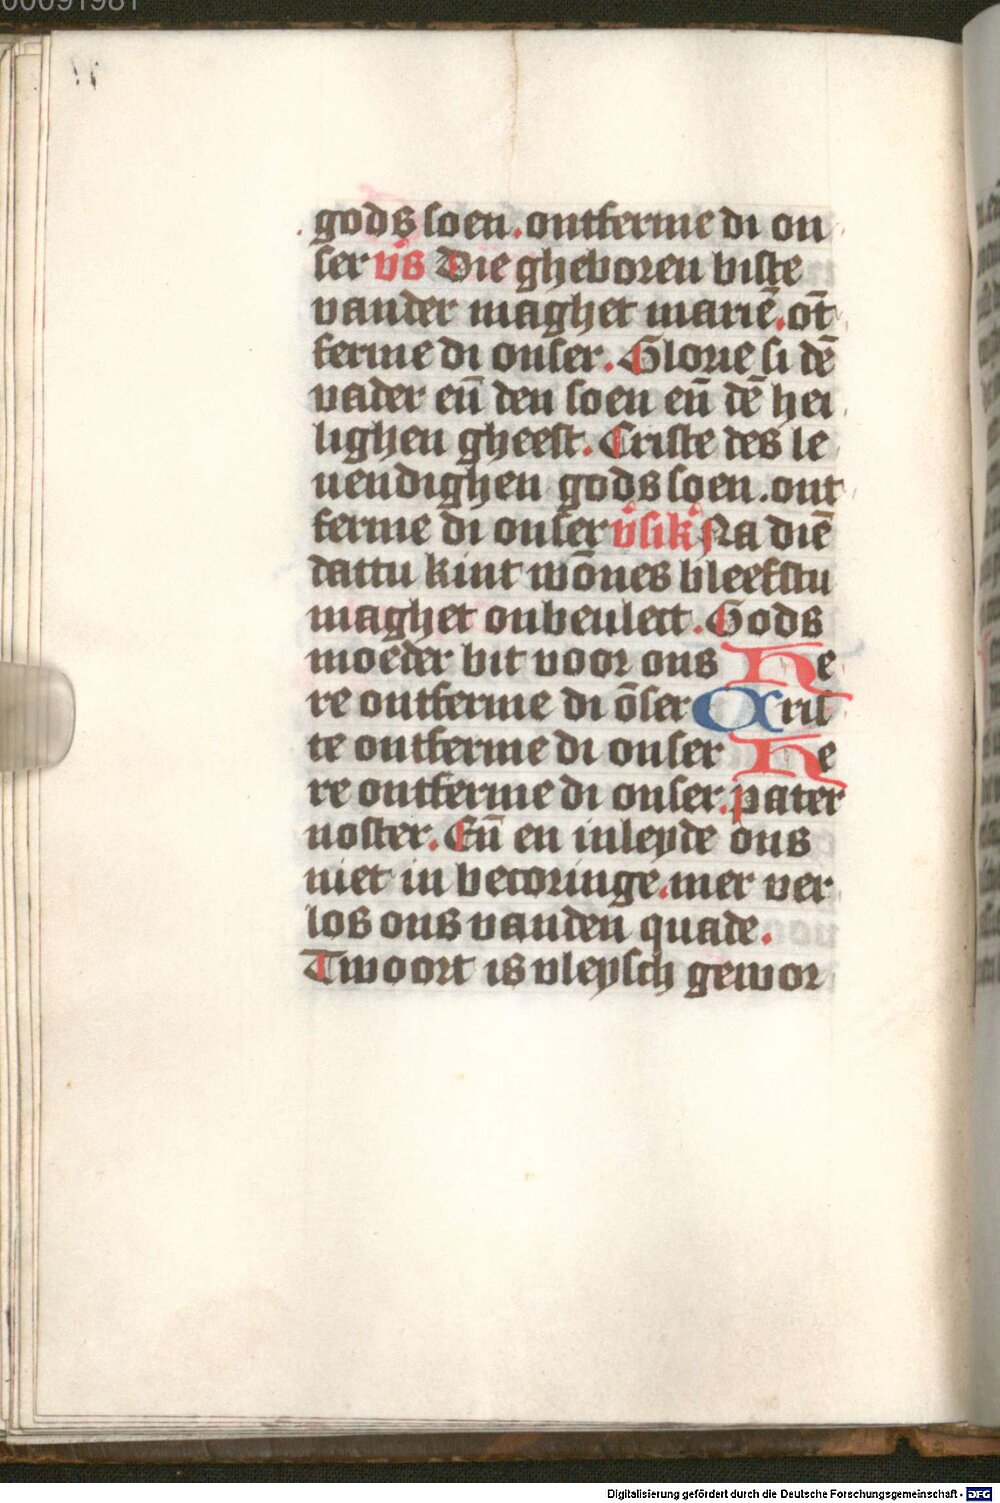 00091981
gods soen. ontferme di on
ser v̊s Die gheboren biste
vander maghet mariē. ōt
ferme di onser. Glorie si dē
vader eñ den soen eñ dē hei
lighen gheest. Criste des le
uendighen gods soen. ont
ferme di onser v̊sik̊ Na diē
dattu kint wōnes bleefstu
maghet onbeulect. Gods
moeder bit voor ons He
re ontferme di ōser Xris
te ontferme di onser He
re ontferme di onser. pater
noster. Eñ en inleyde ons
niet in becoringe. mer ver
los ons vanden quade.
Twoort is vleysch gewor
Digitalisierung gefördert durch die Deutsche Forschungsgemeinschaft - DFG